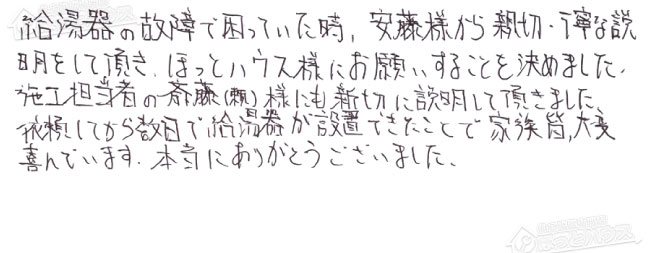 給湯器の故障で困っていた時、安藤様から親切・丁寧な説
明をして頂き、ほっとハウス様にお願いすることを決めました。
施工担当者の斎藤(親)様にも新切に説明して頂きました、
依頼してから数日で給湯器が設置できたことで家族皆、大変
喜んでいます。本当にありがとうございました、